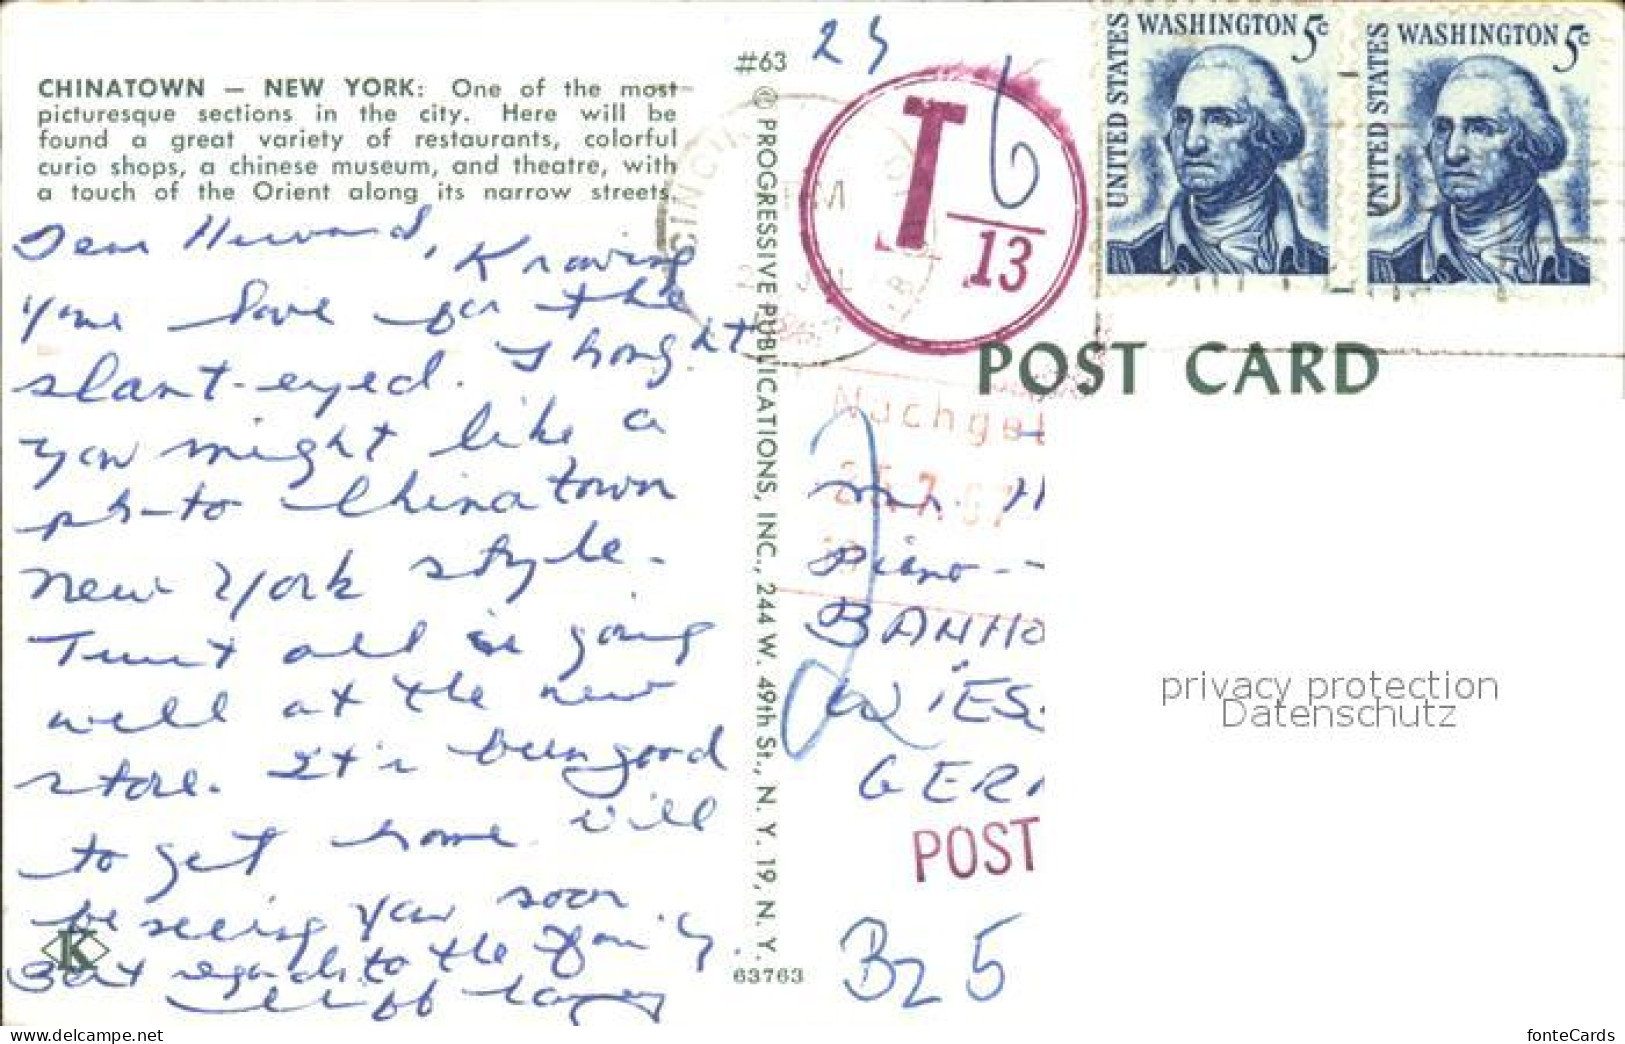 CHINATOWN — NEW YORK: One of the most
picturesque sections in the city. Here will be
found a great variety of restaurants, colorful
curio shops, a chinese museum, and theatre, with
a touch of the Orient along its narrow streets.
Dear Howard, Knowing
your love for the
slant-eyed. I thought
you might like a
photo Chinatown
New York style.
Trust all is going
well at the new
store. It's been good
to get home. Will
be seeing you soon.
Best regards to the family.
Cliff
K
#63
© PROGRESSIVE PUBLICATIONS, INC., 244 W. 49th St., N. Y. 19, N. Y.
63763
25
T 6
13
UNITED STATES WASHINGTON 5c
UNITED STATES WASHINGTON 5c
POST CARD
Nachgeb
25.7.67
Mr. H
Piano-
BANHO
WIES
GER
POST
Bz 5
privacy protection
Datenschutz
www.delcampe.net
fonteCards